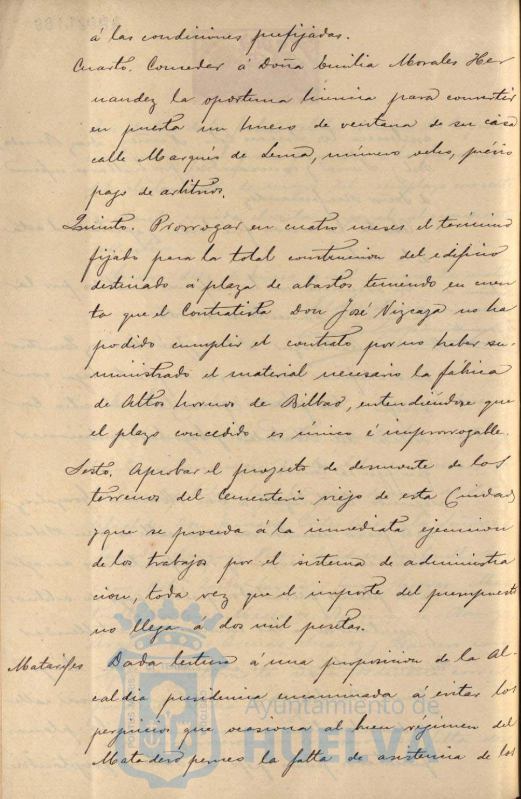 á las condiciones prefijadas.
Cuarto. Conceder á Doña Emilia Morales Her
nandez la oportuna licencia para convertir
en puerta un hueco de ventana de su casa
calle Marqués de Lema, número ocho, prévio
pago de arbitrios.
Quinto. Prorrogar en cuatro meses el término
fijado para la total construccion del edificio
destinado á plaza de abastos teniendo en cuen
ta que el Contratista Don José Vizcaya no ha
podido cumplir el contrato por no haber su-
ministrado el material necesario la fábrica
de Altos hornos de Bilbao, entendiéndose que
el plazo concedido es único é improrrogable.
Sesto. Aprobar el proyecto de desmonte de los
terrenos del Cementerio viejo de esta Ciudad
y que se proceda á la inmediata ejecucion
de los trabajos por el sistema de administra
cion, toda vez que el importe del presupuesto
no llega á dos mil pesetas.
Matarifes Dada lectura á una proposicion de la Al
caldia presidencia encaminada á evitar los
perjuicios que ocasiona al buen régimen del
Matadero persuco la falta de asistencia de los
Ayuntamiento de
HUELVA